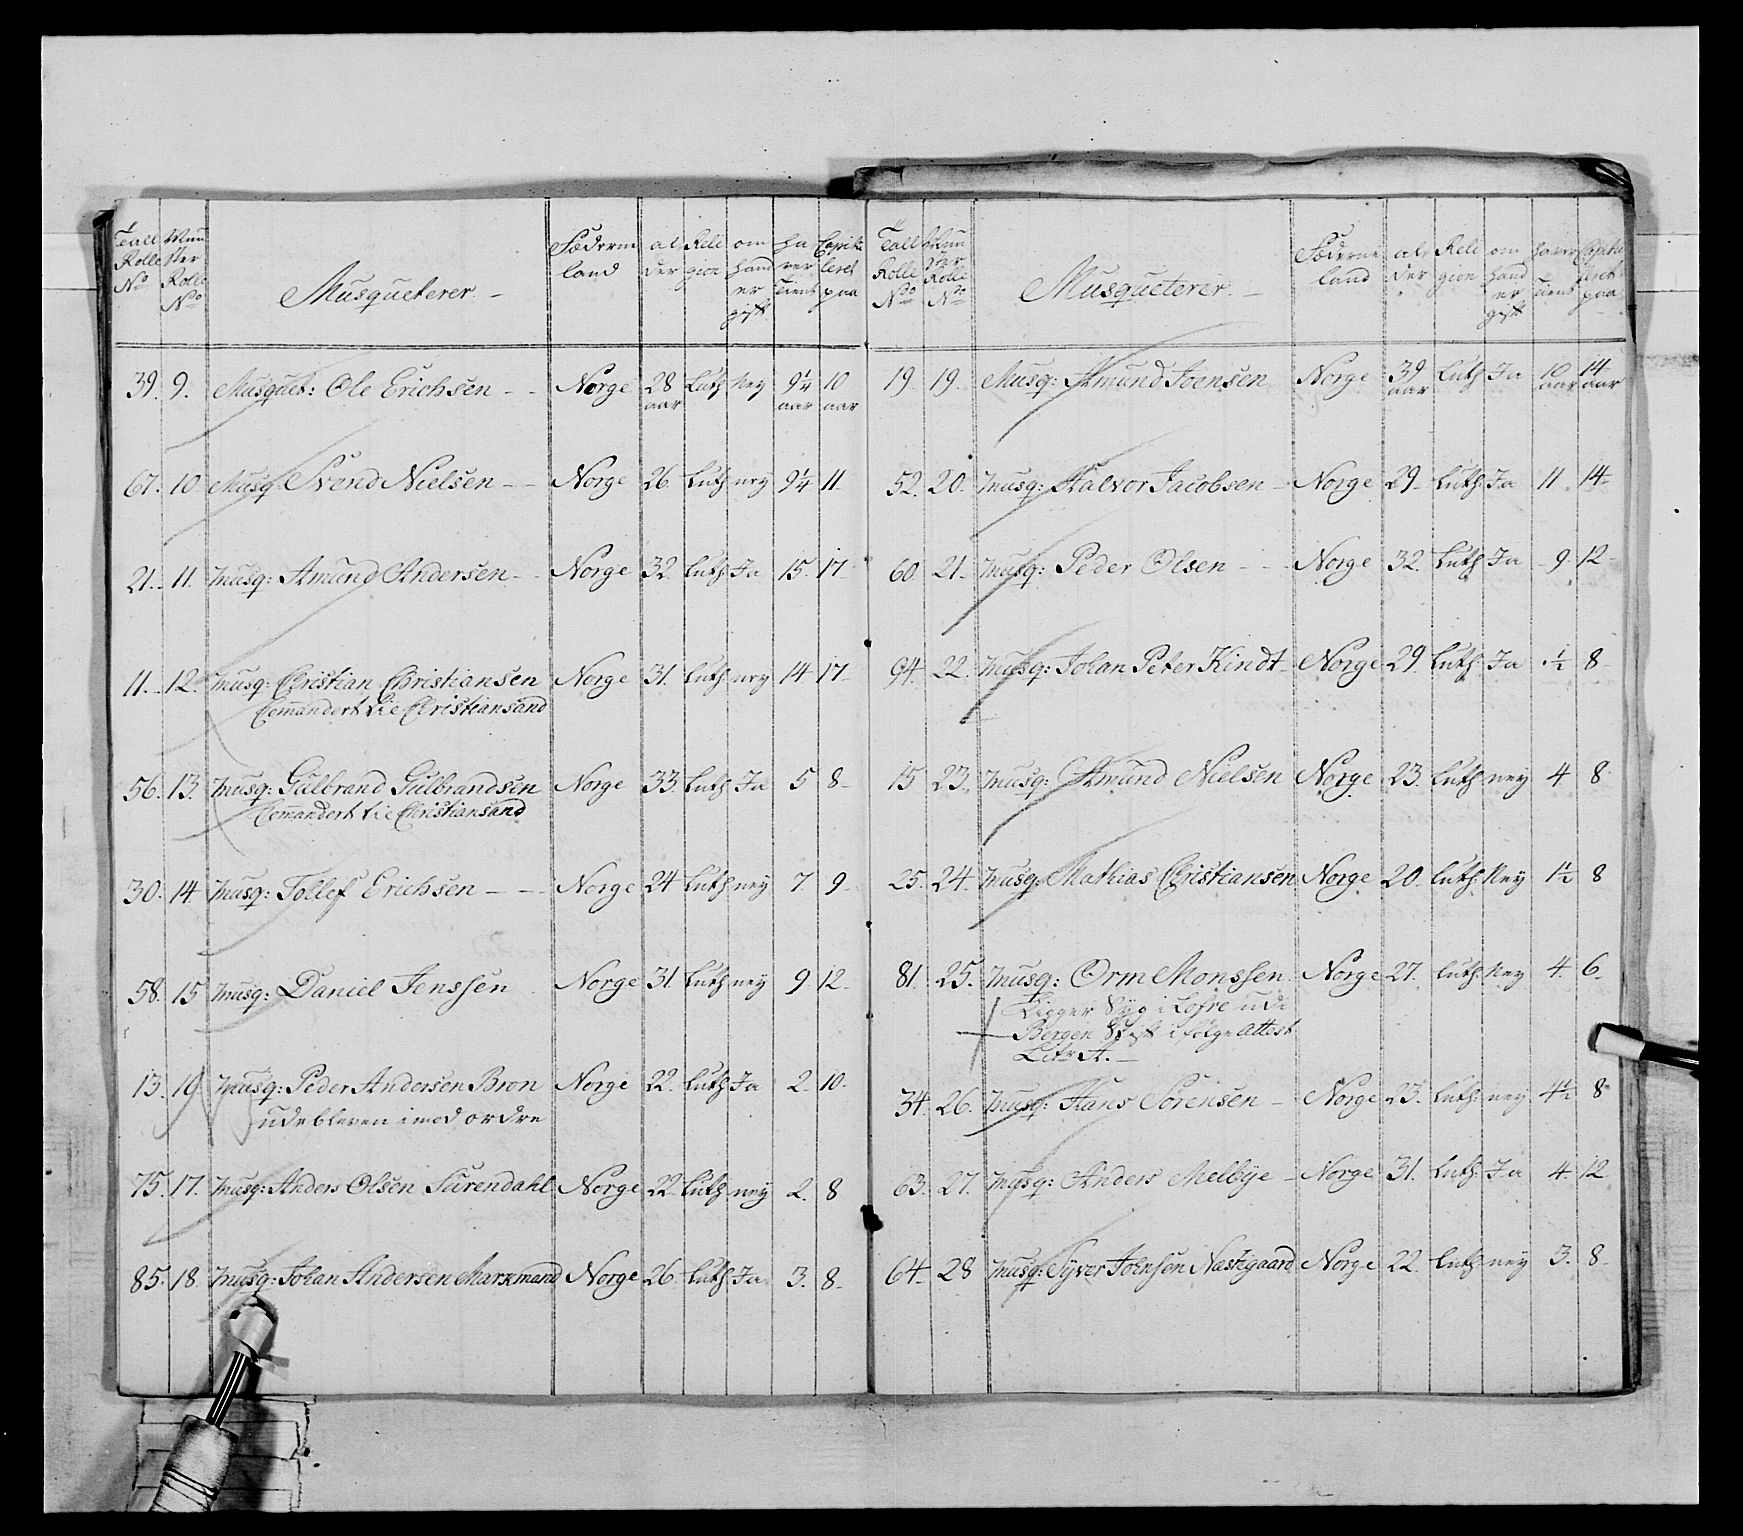 Tall Rolle No | Mun ster Rolle No | Musqueterer | Fæderne land | al der | Reli gion | om hand er gift | ha ver tient | Capitu leret paa
39. 9. Musquet: Ole Erichsen Norge 28 aar Luth Ney 9 1/4 aar 10 aar
67. 10 Musq Svend Nielsen Norge 26 Luth ney 9 1/4 11
21. 11. Musq: Amund Andersen Norge 32 Luth Ja 15. 17
11. 12. Musq: Christian Christiansen Norge 31. Luth ney 14 17
Commandert tie Christiansand
56. 13. Musq: Gulbrand Gulbrandsen Norge 33. Luth Ja 5 8
Commandert tie Christiansand
30. 14 Musq: Tollef Erichsen Norge 24 Luth ney 7. 9
58. 15 Musq: Daniel Jenssen Norge 31. Luth ney 9 12
13. 19 Musq: Peder Andersen Bron Norge 22. Luth Ja 2. 10.
udebleven imod ordre
75. 17. Musq: Anders Olsen Surendahl Norge 22. Luth ney 2. 8
85. 18. Musq: Johan Andersen Markmand Norge 26. Luth Ja 3. 8
Tall Rolle No | Mun ster Rolle No | Musqueterer | Fæderne land | al der | Reli gion | om hand er gift | haver tient | Capitu leret paa
19. 19. Musq: Amund Joensen Norge 39 aar Luth Ja 10 aar 14 aar
52. 20. Musq: Halvor Jacobsen Norge 29 Luth: Ja 11 14
60. 21. Musq: Peder Olsen Norge 32. Luth Ja 9. 12
94. 22. Musq: Johan Peter Kindt Norge 29. Luth. Ja 1/2 8
15 23. Musq: Amund Nielsen Norge 23. Luth ney 4 8
25. 24. Musq: Mathias Christiansen Norge 20. Luth: Ney 1 1/2 8
81. 25. Musq: Orm Monssen Norge 27. Luth. Ney 4. 6
Ligger Syg i udi
Bergen Stift i følge Attest
Litr A.
34. 26. Musq: Hans Sörensen Norge 23. Luth. ney 4 1/2 8
63. 27. Musq: Anders Melbye Norge 31. Luth. Ja 4. 12
64. 28 Musq: Syver Joensen Næstegaard Norge 22. Luth. ney 3. 8